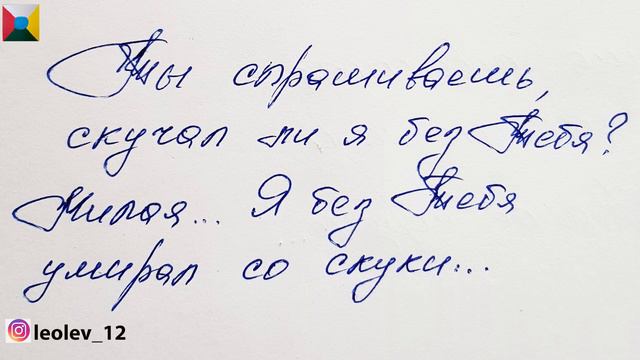 Ты спрашиваешь,
скучал ли я без Тебя?
Милая... Я без Тебя
умирал со скуки...
leolev_12